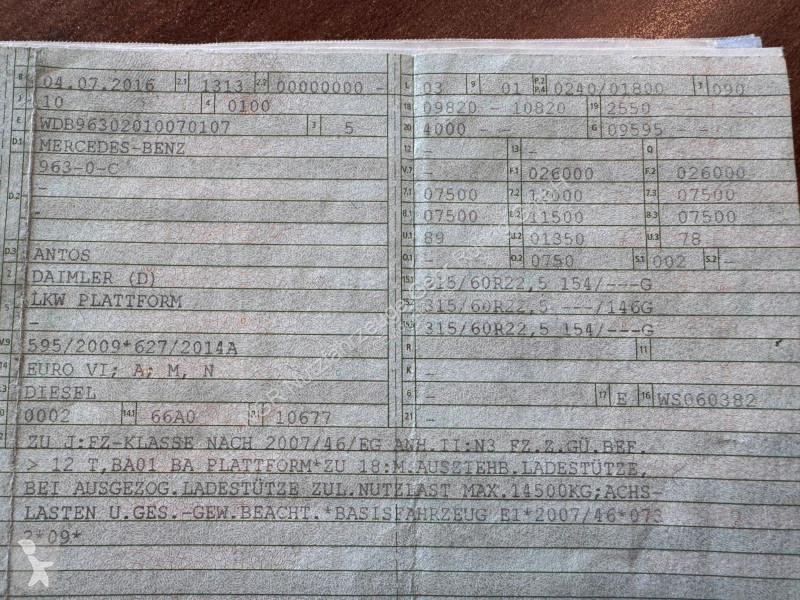 B 04.07.2016 2.1 1313 2.2 00000000 - L 03 9 01 P.2 P.4 0240/01800 T 090
J 10 4 0100 18 09820 - 10820 19 2550 -
E WDB96302010070107 3 5 20 4000 - - G 09595 - -
D.1 MERCEDES-BENZ 12 - 13 - Q -
963-0-C V.7 - F.1 026000 F.2 026000
D.2 - 7.1 07500 7.2 12000 7.3 07500
- 8.1 07500 8.2 11500 8.3 07500
U.1 89 U.2 01350 U.3 78
D.3 ANTOS O.1 - O.2 0750 S.1 002 S.2 -
2 DAIMLER (D) 15.1 315/60R22,5 154/---G
5 LKW PLATTFORM 15.2 315/60R22,5 ---/146G
- 15.3 315/60R22,5 154/---G
V.9 595/2009*627/2014A R 11
14 EURO VI; A; M, N K -
P.3 DIESEL 6 - 17 E 16 WS060382
10 0002 14.1 66A0 P.1 10677 21 -
22 ZU J:FZ-KLASSE NACH 2007/46/EG ANH.II:N3 FZ.Z.GÜ.BEF.
> 12 T,BA01 BA PLATTFORM*ZU 18:M.AUSZIEHB.LADESTÜTZE,
BEI AUSGEZOG.LADESTÜTZE ZUL.NUTZLAST MAX.14500KG;ACHS-
LASTEN U.GES.-GEW.BEACHT.*BASISFAHRZEUG E1*2007/46*073
2*09*